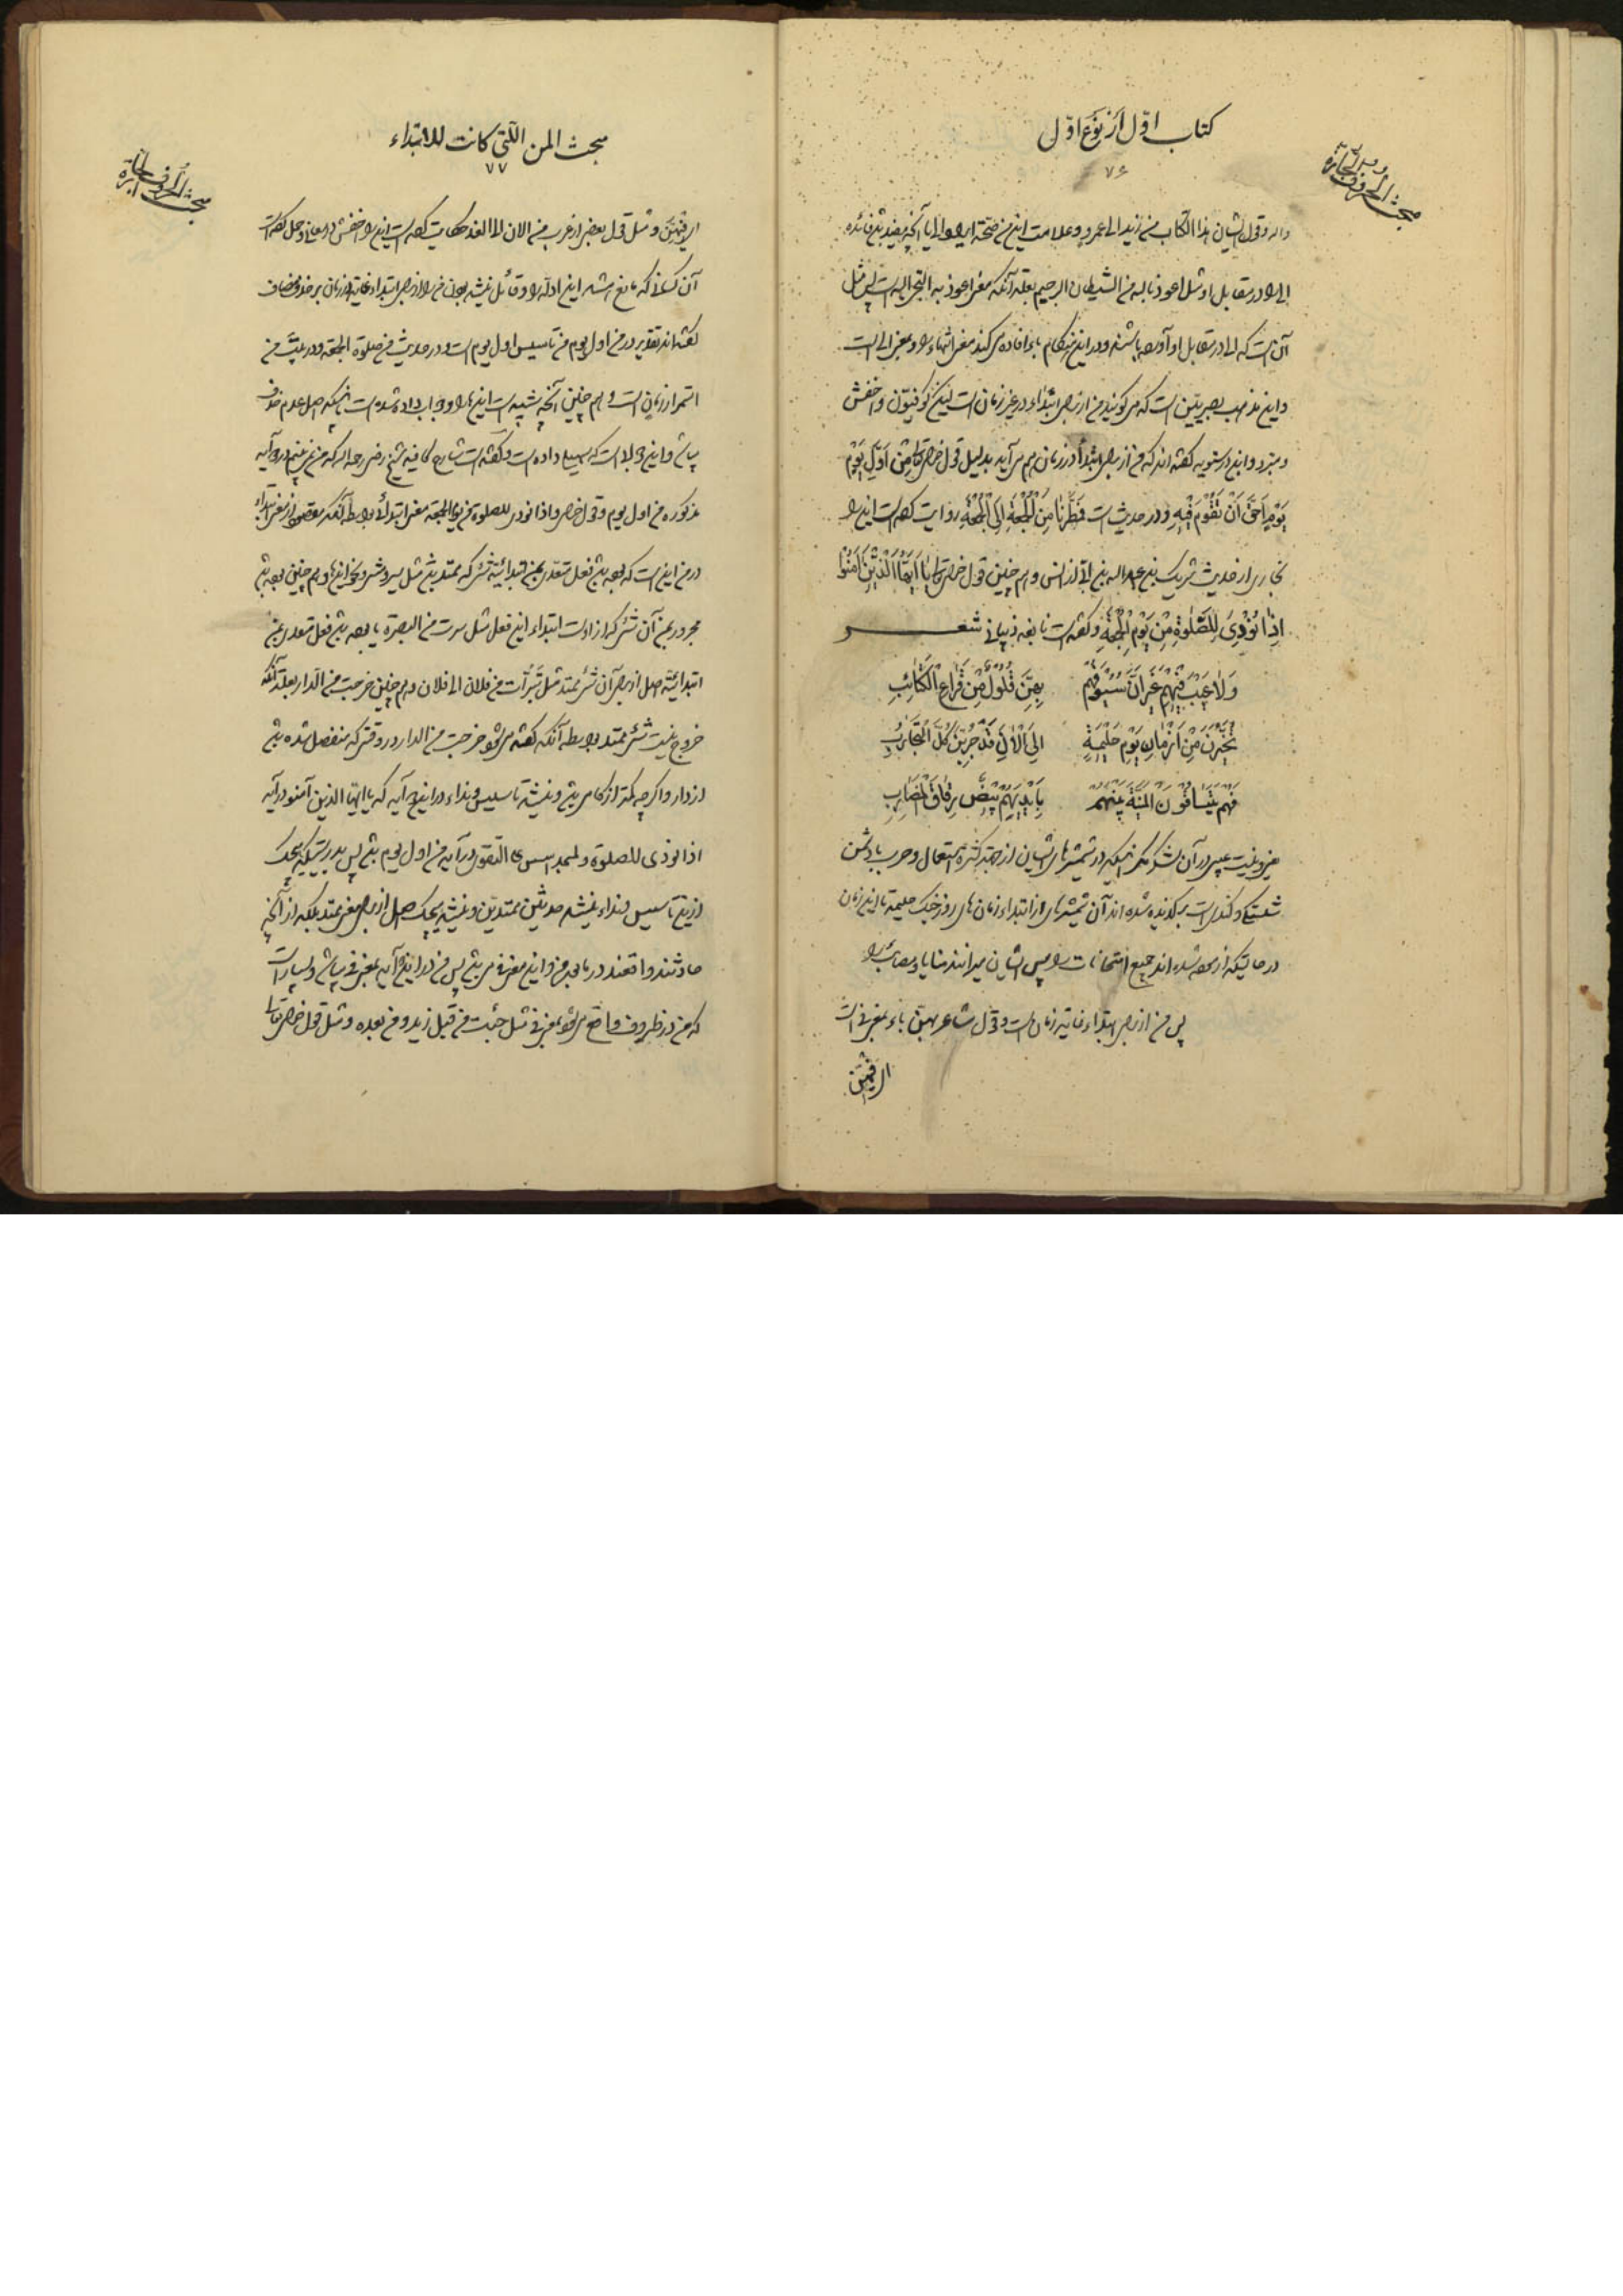 کتاب اوّل از نوع اوّل
۷۶
مبحث الحروف الجارّة
دار و قول ایشان هذا الکتاب من زید الی عمرو و علامت این من صحّة ایراد الی یا آنچه مفید فائده
الی در مقابل او مثل اعوذ بالله من الشیطان الرجیم بعلة آنکه معنی اعوذ به التجی الیه است پس مثل
آن است که الی در مقابل او آورده باشند و در این هنگام باء افاده می کند معنی انتهاء را و بمعنی الی است
و این مذهب بصریین است که می گویند من از برای ابتداء در غیر زمان است لیکن کوفیّون و اخفش
و مبرد و ابن درستویه گفته اند که من از برای ابتداء در زمان هم می آید بدلیل قول خدای تعالی مِنْ اَوَّلِ یَوْمٍ
یَوْمٍ اَحَقُّ اَنْ تَقُوْمَ فِیْهِ و در حدیث است فَمُطِرْنَا مِنَ الْجُمُعَةِ اِلَی الْجُمُعَةِ روایت کرده است این را
بخاری از حدیث شریک بن عبدالله بن ابی از انس و هم چنین قول خدای تعالی یَا اَیُّهَا الَّذِیْنَ اٰمَنُوْا
اِذَا نُوْدِیَ لِلصَّلٰوةِ مِنْ یَوْمِ الْجُمُعَةِ و گفته است نابغه ذبیانی شعـــر
وَ لَا عَیْبَ فِیْهِمْ غَیْرَ اَنَّ سُیُوْفَهُمْ بِهِنَّ فُلُوْلٌ مِنْ قِرَاعِ الْکَتَائِبِ
تُخُیِّرْنَ مِنْ اَزْمَانِ یَوْمِ حَلِیْمَةٍ اِلَی الْاٰنَ قَدْ جُرِّبْنَ کُلَّ التَّجَارِبِ
فَهُمْ یَتَسَاقَوْنَ الْمَنِیَّةَ بَیْنَهُمْ بِاَیْدِیْهِمْ بِیْضٌ رِقَاقُ الْمَضَارِبِ
یعنی و نیست عیبی در آن لشکر مگر اینکه در شمشیرهای ایشان از جهة کثرة استعمال و حرب با دشمن
شکستگی و کندی است برگزیده شده اند آن شمشیرها از ابتداء زمان های روز جنگ حلیمه تا این زمان
در حالتیکه آزموده شده اند جمیع امتحانات را پس ایشان میرانند منایا و مصائب را
پس من از برای ابتداء غایة زمان است و قول شاعر بهنّ باء بمعنی فی است
ای فیهنّ
مبحث المن الّتی کانت للابتداء
۷۷
مبحث الحروف الجارّة
ای فیهنّ و مثل قول بعضی از عرب من الان الی الغد حکایت کرده است این را اخفش در معانی و حمل کرده است
آن کسانی که مانع شده این ادله را و قائل نیستند بودن من را از برای ابتداء غایة در زمان بر حذف مضاف
گفته اند تقدیر در من اول یوم من تأسیس اول یوم است و در حدیث من صلوة الجمعة و در بیت من
استمرار زمان است و هم چنین آنچه شبیه است اینها را و جواب داده شده است باینکه اصل عدم حذف
میباشد و این جوابی است که سهیلی داده است و گفته است شارح کافیه شیخ رضی رحمه الله که من نمی بینم در دو آیه
مذکوره من اول یوم و قول خدای و اذا نودی للصلوة من یوم الجمعة معنی ابتدائی بواسطه آنکه مقصود از معنی ابتداء
در من این است که بوده باشد فعل متعدی بمن ابتدائیّه شیء که ممتد باشد مثل سیر و مشی و نحو اینها و هم چنین بوده باشد
مجرور بمن آن شیء که از اوست ابتداء این فعل مثل سرت من البصرة یا بوده باشد فعل متعدی بمن
ابتدائیّه اصل از برای آن شیء ممتد مثل تَبَرَّأت من فلان الی فلان و هم چنین خرجت من الدار بعلة آنکه
خروج نیست شیء ممتد بواسطه آنکه گفته می شود خرجت من الدار در وقتی که منفصل شده باشد
از دار و اگر چه کمتر از گامی باشد و نیستند تأسیس و نداء در این دو آیه که یا ایها الذین آمنوا در آیه
اذا نودی للصلوة و لمسجد اسس علی التقوی در آیه من اول یوم باشد پس بدرستیکه هیچ یک
از این تأسیس و نداء نیستند حدثین ممتدین و نیستند هیچ یک اصل از برای معنی ممتد بلکه از آنچه
حادثند واقعند در ما بعد من و این معنی فی می باشد پس من در این دو آیه بمعنی فی میباشد و بسیار است
که من در ظروف واقع می شود بمعنی فی مثل جئت من قبل زید و من بعده و مثل قول خدای تعالی